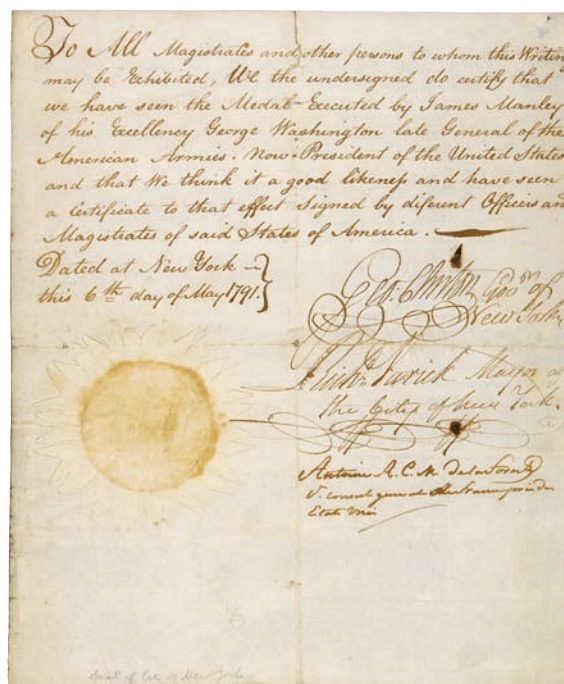 To All Magistrates and other persons to whom this Writing
may be Exhibited, We the undersigned do certify that
we have seen the Medal Executed by James Manley
of his Excellency George Washington late General of the
American Armies. Now President of the United States
and that We think it a good likeness and have seen
a Certificate to that effect Signed by diferent Officers and
Magistrates of said States of America.
Dated at New York
this 6th day of May 1791.
Geo. Clinton Govr. of
New York
Richd. Varick Mayor of
the City of New York.
Antoine R. C. M. de la Forest
V. consul general de france près les
Etats Unis
Seal of City of New York